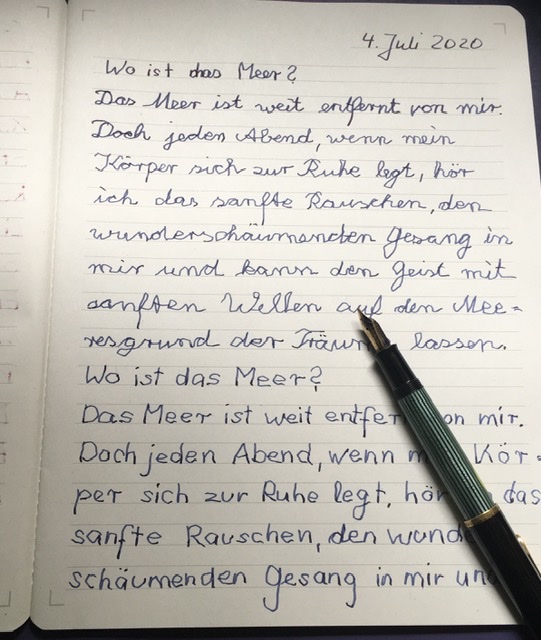 4. Juli 2020
Wo ist das Meer?
Das Meer ist weit entfernt von mir.
Doch jeden Abend, wenn mein
Körper sich zur Ruhe legt, hör
ich das sanfte Rauschen, den
wunderschäumenden Gesang in
mir und kann den Geist mit
sanften Wellen auf den Mee=
resgrund der Träum lassen.
Wo ist das Meer?
Das Meer ist weit entfer on mir.
Doch jeden Abend, wenn m Kör=
per sich zur Ruhe legt, hör das
sanfte Rauschen, den wunde
schäumenden Gesang in mir un